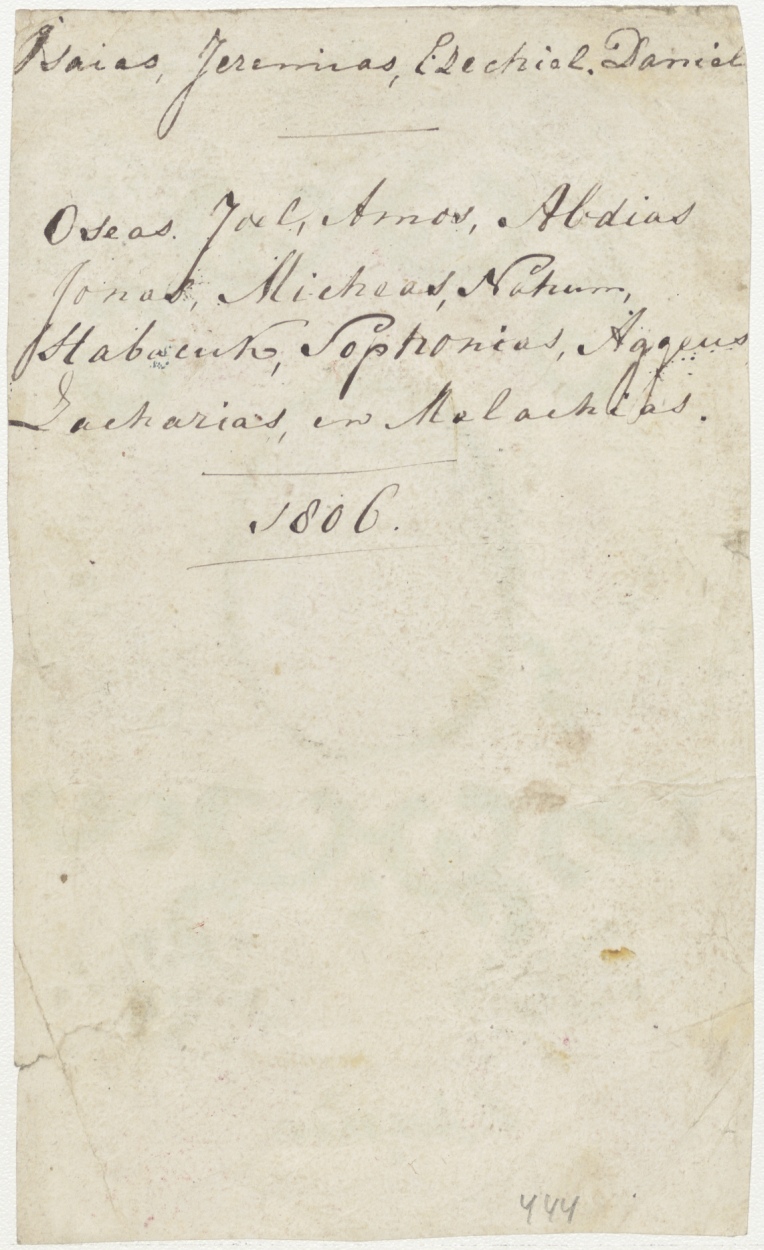 Isaias, Jeremias, Ezechiel. Daniel
Oseas. Joel, Amos, Abdias
Jonas, Micheas, Nahum,
Habacuk, Sophonias, Aggeus
Zacharias, en Malachias.
1806.
444